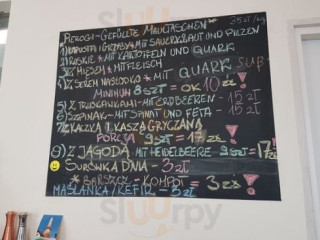 PIEROGI-GEFÜLLTE MAULTASCHEN 35zł/kg
1) KAPUSTA I GRZYBY * MIT SAUERKRAUT UND PILZEN
2) RUSKIE * MIT KARTOFFELN UND QUARK
3) Z MIĘSEM * MIT FLEISCH
4) Z SEREM NASŁODKO * MIT QUARK SÜß
MINIUM 8 SZT = OK 10 zł !
5) Z TRUSKAWKAMI-MIT ERDBEEREN - 15 zł
6) SZPINAK-MIT SPINAT UND FETA - 15 zł
7) KACZKA I KASZA GRYCZANA
PORCJA 9 SZT = 17 zł !
8) Z JAGODĄ MIT HEIDELBEERE 9 SZT = 17 zł !
SURÓWKA DNIA - 3 zł
* BARSZCZ - KOMPOT = 3 zł !
MAŚLANKA / KEFIR - 3 zł
sluurpy